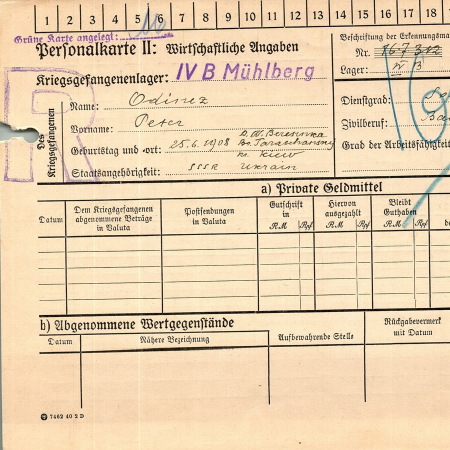 1 2 3 4 5 6 7 8 9 10 11 12 13 14 15 16 17 18
Grüne Karte angelegt:
Personalkarte II: Wirtschaftliche Angaben
Kriegsgefangenenlager: IV B Mühlberg
Beschriftung der Erkennungsma
Nr.
Lager: IV B
Des Kriegsgefangenen
Name: Odinez
Vorname: Peter
Geburtstag und -ort: 25.6.1908
Kr. Kiew
Staatsangehörigkeit: SSSR Ukrain
Dienstgrad:
Zivilberuf:
Grad der Arbeitsfähigkeit
R
a) Private Geldmittel
Datum
Dem Kriegsgefangenen abgenommene Beträge in Valuta
Postsendungen in Valuta
Gutschrift in
RM Rpf
Hiervon ausgezahlt
RM Rpf
Bleibt Guthaben
RM Rpf
b) Abgenommene Wertgegenstände
Datum
Nähere Bezeichnung
Aufbewahrende Stelle
Rückgabevermerk mit Datum
7462 40 2 D